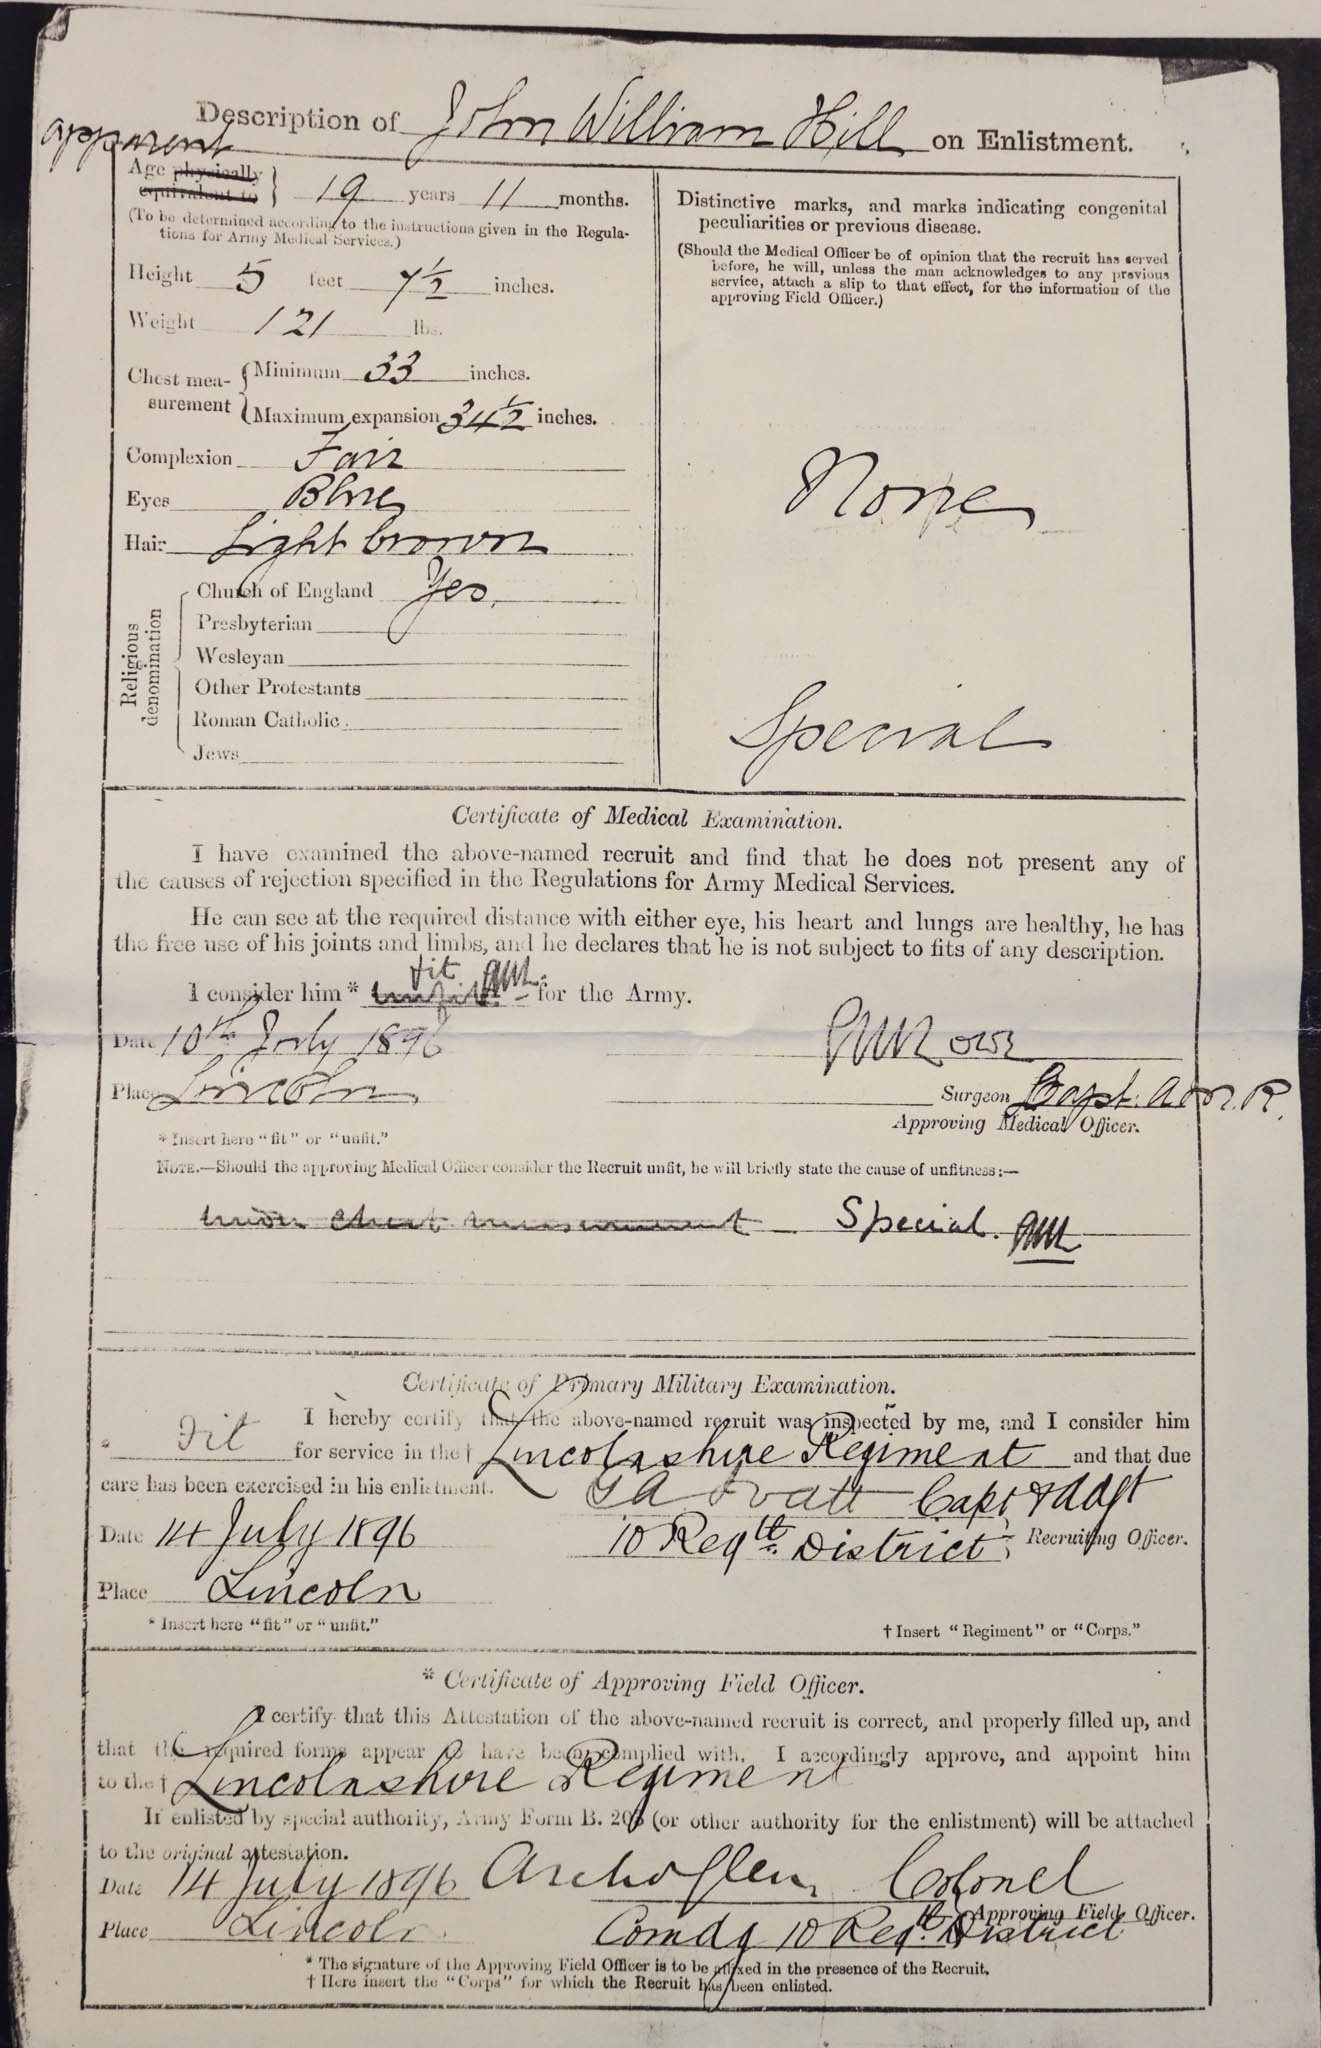 Description of John William Hill on Enlistment.
apparent
Age physically equivalent to } 19 years 11 months.
(To be determined according to the instructions given in the Regula-
tions for Army Medical Services.)
Height 5 feet 7½ inches.
Weight 121 lbs.
Chest mea-
surement { Minimum 33 inches.
{ Maximum expansion 34½ inches.
Complexion Fair
Eyes Blue
Hair Light brown
Religious denomination
Church of England Yes.
Presbyterian
Wesleyan
Other Protestants
Roman Catholic
Jews
Distinctive marks, and marks indicating congenital
peculiarities or previous disease.
(Should the Medical Officer be of opinion that the recruit has served
before, he will, unless the man acknowledges to any previous
service, attach a slip to that effect, for the information of the
approving Field Officer.)
None
Special
Certificate of Medical Examination.
I have examined the above-named recruit and find that he does not present any of
the causes of rejection specified in the Regulations for Army Medical Services.
He can see at the required distance with either eye, his heart and lungs are healthy, he has
the free use of his joints and limbs, and he declares that he is not subject to fits of any description.
fit
I consider him * unfit for the Army.
Date 10th July 1896
Place Lincoln
Surgeon Capt.
Approving Medical Officer.
* Insert here "fit" or "unfit."
NOTE.—Should the approving Medical Officer consider the Recruit unfit, he will briefly state the cause of unfitness:—
under chest measurement Special.
Certificate of Primary Military Examination.
I hereby certify that the above-named recruit was inspected by me, and I consider him
* Fit for service in the † Lincolnshire Regiment and that due
care has been exercised in his enlistment.
Capt & Adjt
Date 14 July 1896 10 Regtl District Recruiting Officer.
Place Lincoln
* Insert here "fit" or "unfit."
† Insert "Regiment" or "Corps."
* Certificate of Approving Field Officer.
I certify that this Attestation of the above-named recruit is correct, and properly filled up, and
that the required forms appear to have been complied with. I accordingly approve, and appoint him
to the † Lincolnshire Regiment
If enlisted by special authority, Army Form B. 203 (or other authority for the enlistment) will be attached
to the original attestation.
Date 14 July 1896 Colonel
Approving Field Officer.
Place Lincoln Comdg 10 Regtl District
* The signature of the Approving Field Officer is to be affixed in the presence of the Recruit.
† Here insert the "Corps" for which the Recruit has been enlisted.